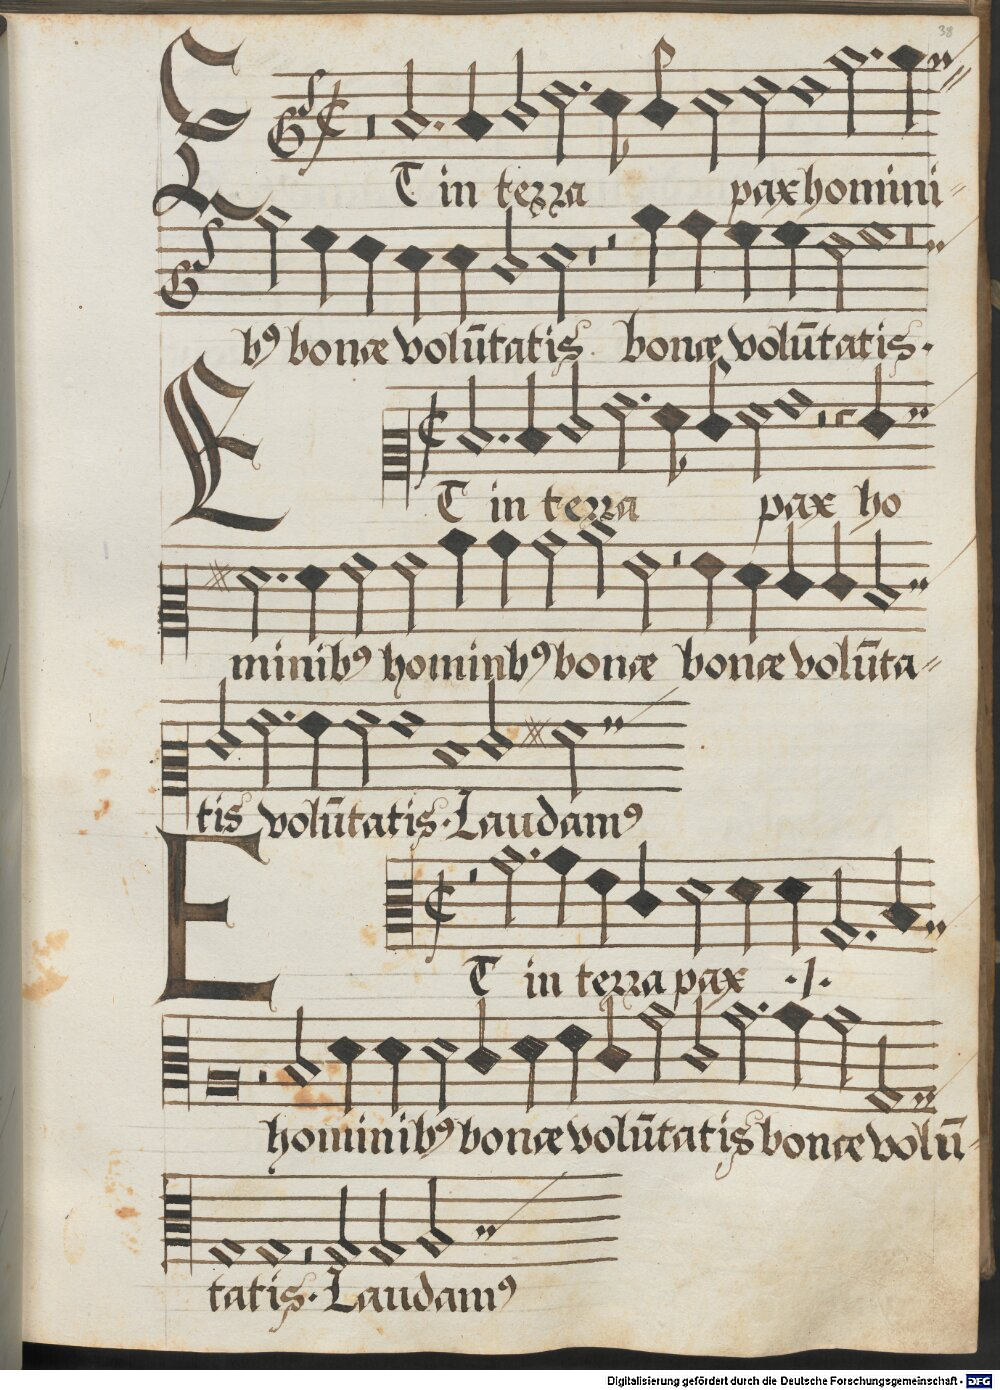 38
ET in terra pax homini
bꝰ bonæ volūtatis bonæ volūtatis.
ET in terra pax ho
minibꝰ hominbꝰ bonæ bonæ volūta
tis volūtatis. Laudamꝰ
ET in terra pax ./.
hominibꝰ bonæ volūtatis bonæ volū
tatis. Laudamꝰ
Digitalisierung gefördert durch die Deutsche Forschungsgemeinschaft - DFG